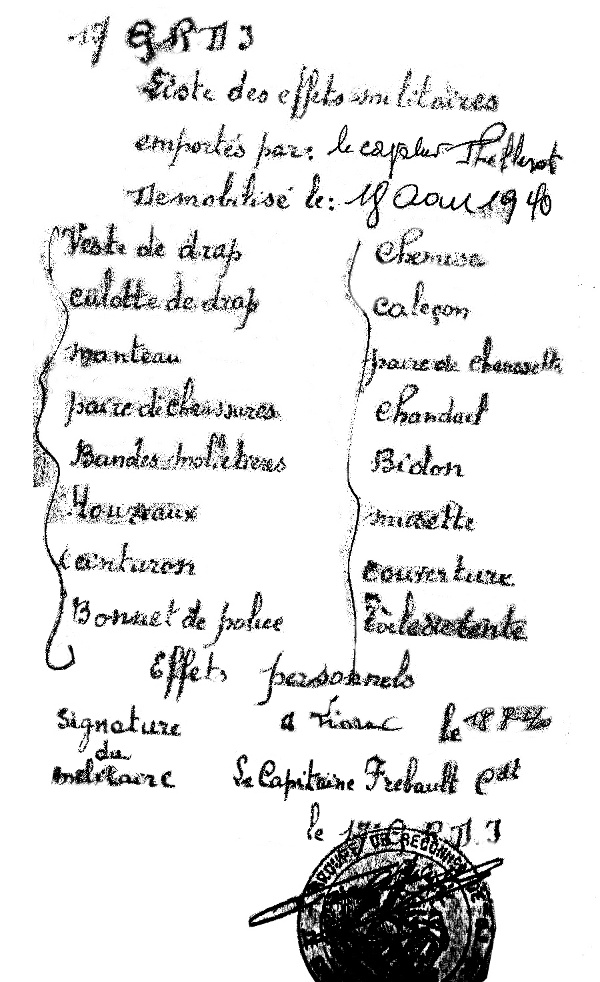 17 G R D I
Liste des effets militaires
emportés par: le
Demobilisé le: 18 Aout 1940
Veste de drap
culotte de drap
manteau
paire de chaussures
Bandes molletières
Houzeaux
Ceinturon
Bonnet de police
Chemise
Caleçon
paire de chaussette
Chandail
Bidon
musette
couverture
Toile de tente
Effets personnels
Signature
du
militaire
a Liorac le 18
Le Capitaine Frebault Cdt
le 17 G. R. D. I
GROUPE DE RECONN